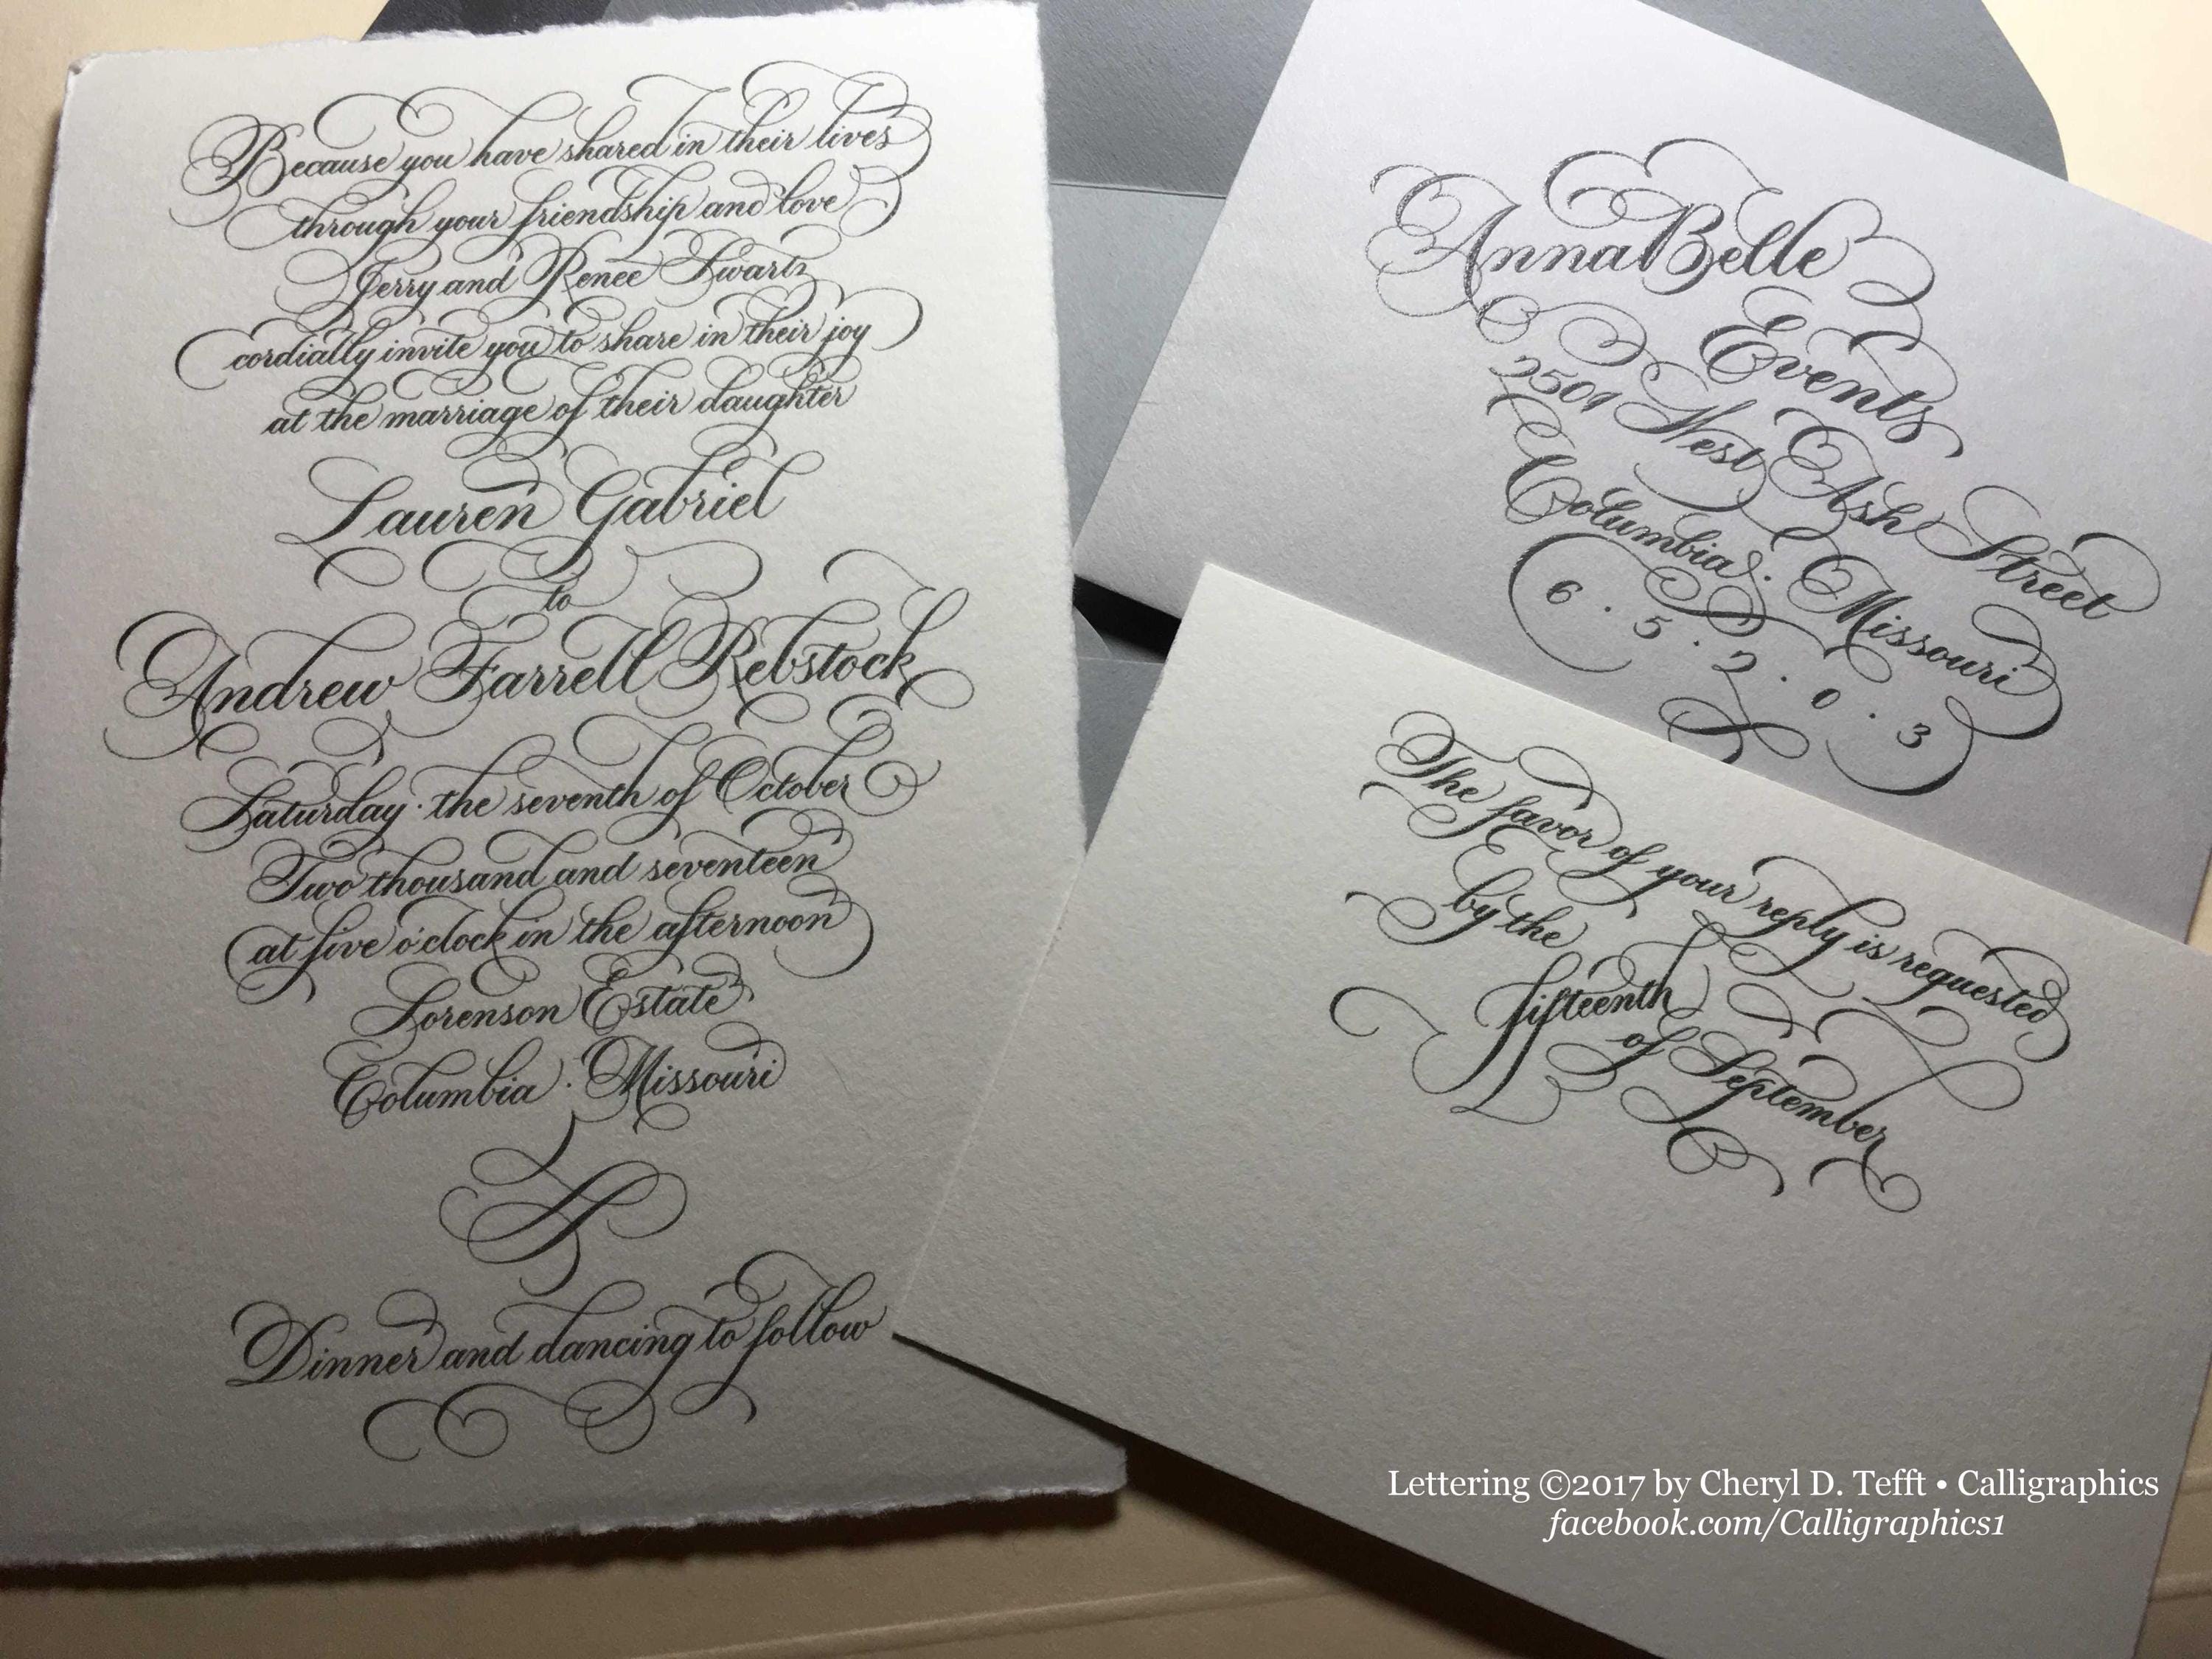 Because you have shared in their lives
through your friendship and love
Jerry and Renee Swartz
cordially invite you to share in their joy
at the marriage of their daughter
Lauren Gabriel
to
Andrew Farrell Rebstock
Saturday · the seventh of October
Two thousand and seventeen
at five o'clock in the afternoon
Sorenson Estate
Columbia · Missouri
Dinner and dancing to follow
AnnaBelle
Events
2509 West Ash Street
Columbia · Missouri
6 · 5 · 2 · 0 · 3
The favor of your reply is requested
by the
fifteenth
of September
Lettering ©2017 by Cheryl D. Tefft • Calligraphics
facebook.com/Calligraphics1